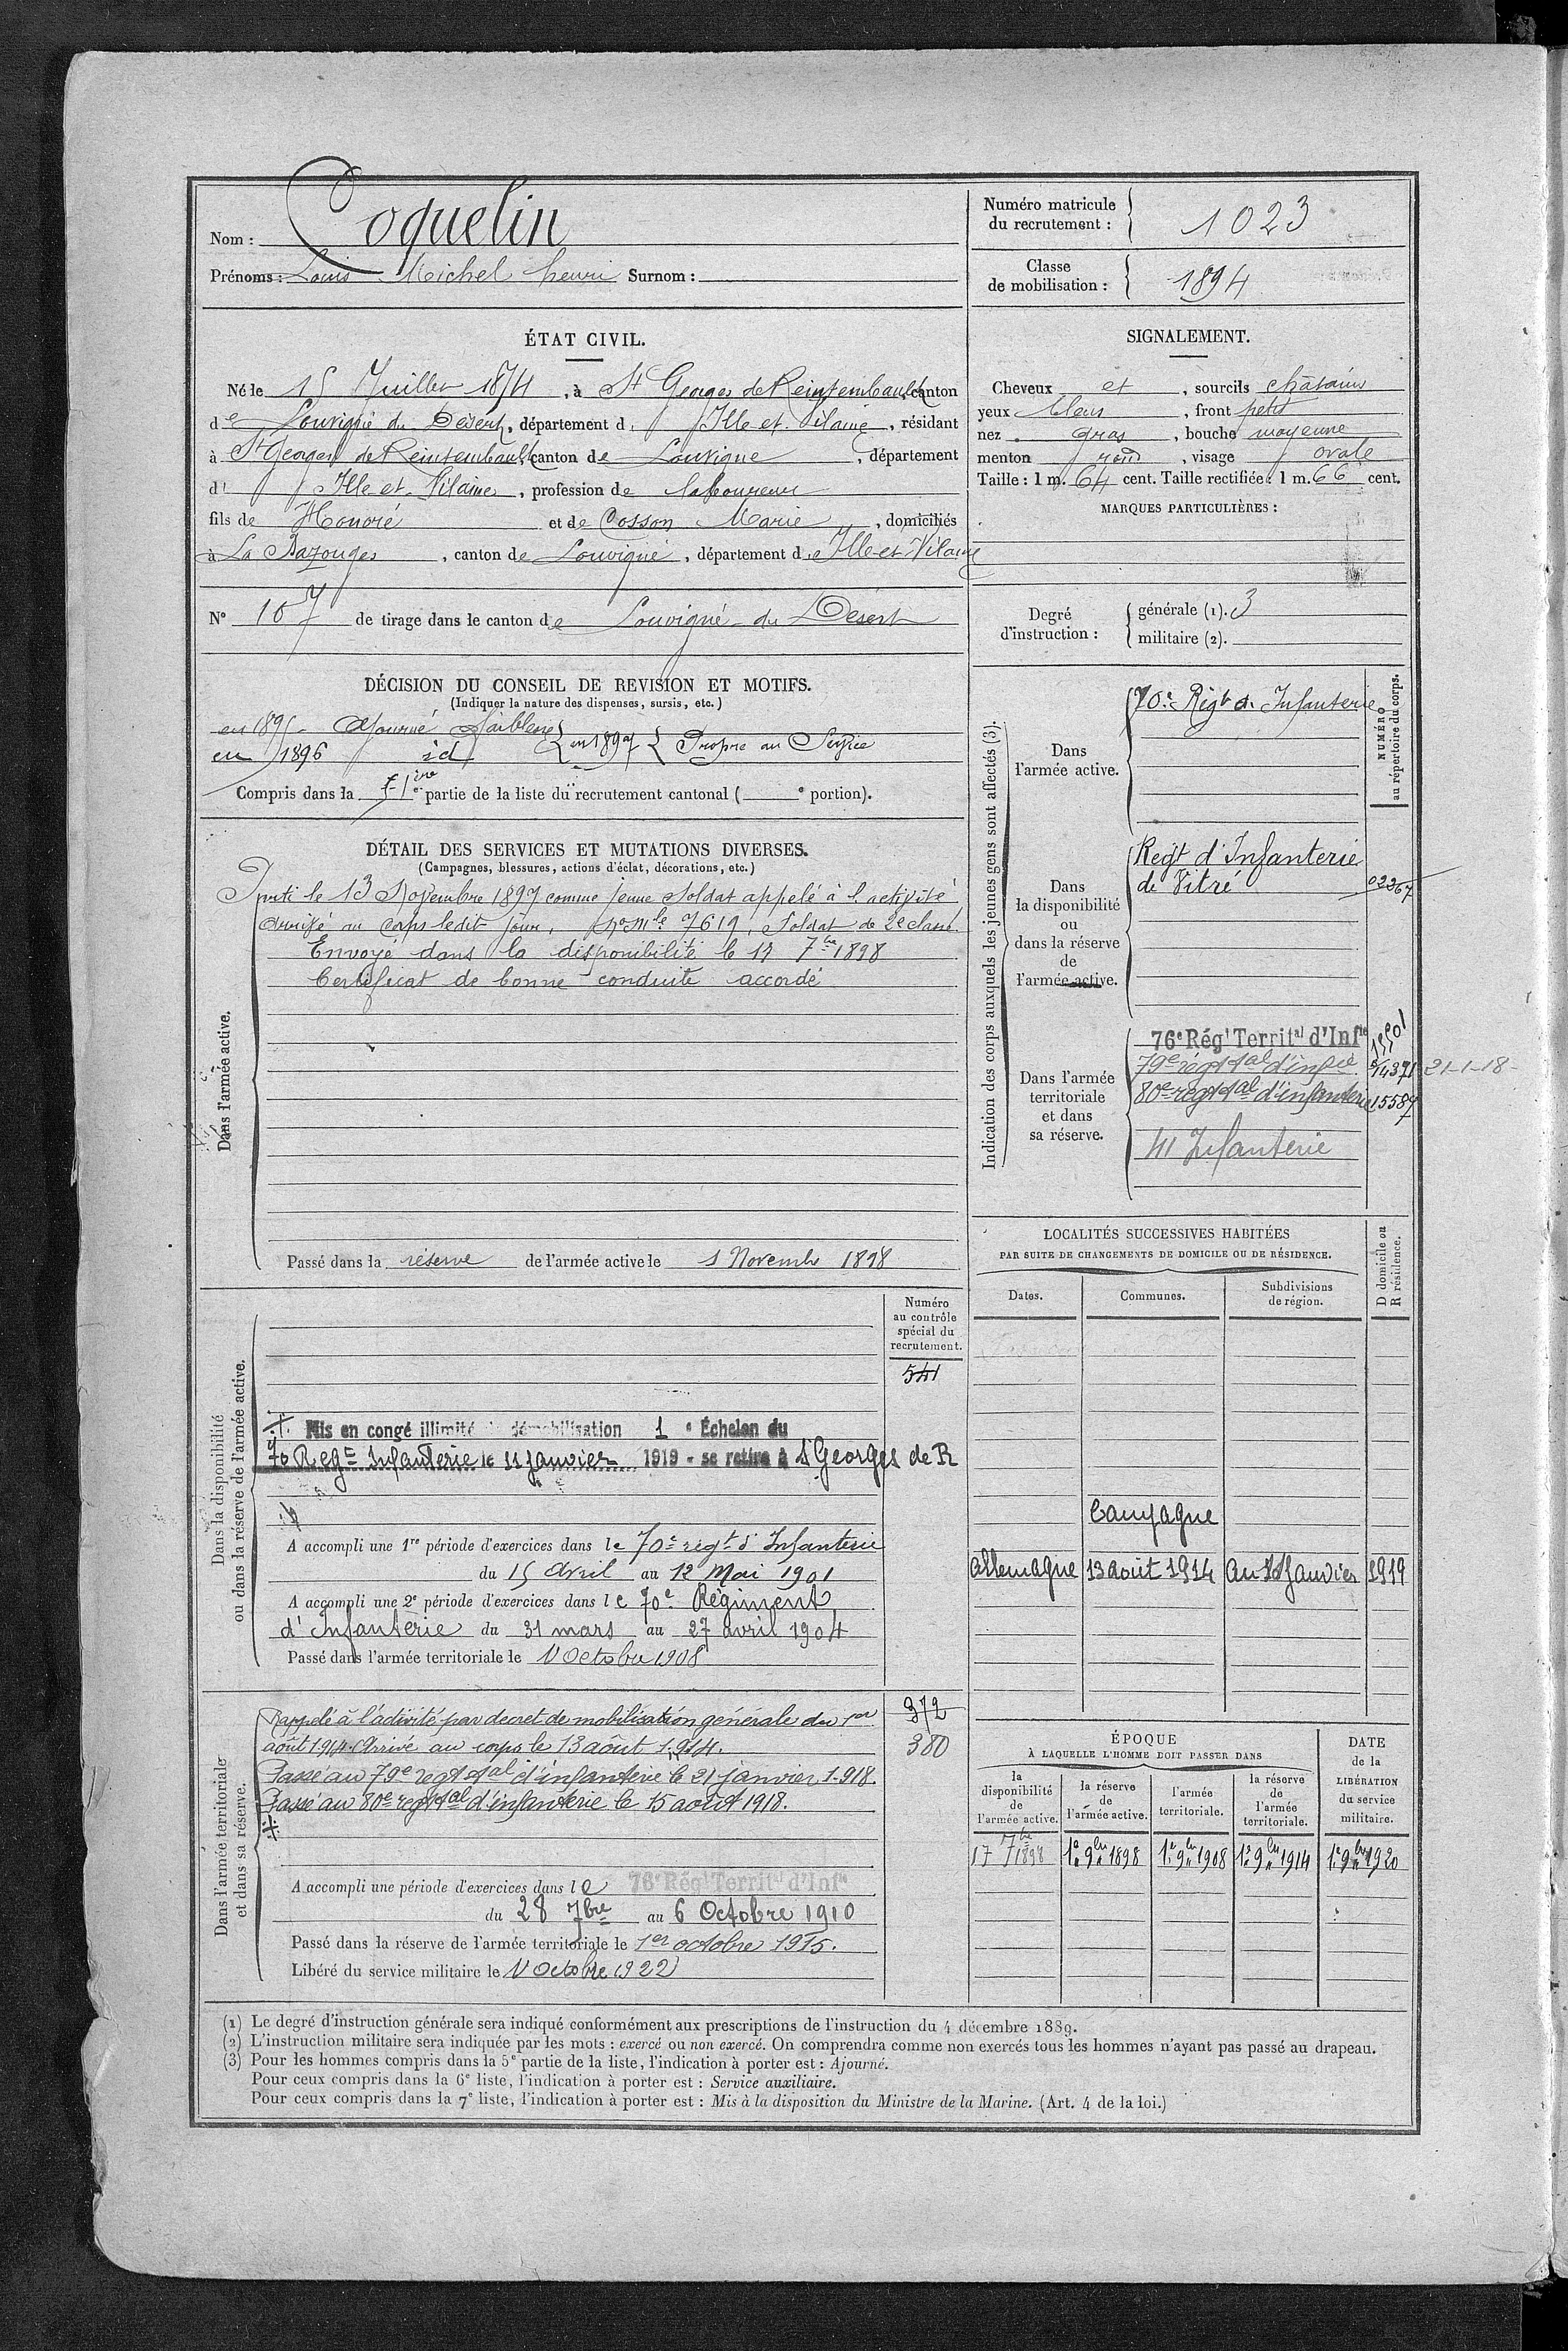 Nom : Coquelin
Prénoms : Louis Michel henri Surnom :
Numéro matricule
du recrutement : 1023
Classe
de mobilisation : 1894
ÉTAT CIVIL.
Né le 15 Juillet 1874, à St Georges de Reintembault, canton
de Louvigné du Désert, département d' Ille et Vilaine, résidant
à St Georges de Reintembault, canton de Louvigné, département
d' Ille et Vilaine, profession de laboureur
fils de Honoré et de Cosson Marie, domiciliés
à La Bazouges, canton de Louvigné, département d'e Ille et Vilaine
N° 107 de tirage dans le canton de Louvigné du Désert
SIGNALEMENT.
Cheveux et, sourcils châtains
yeux bleus, front petit
nez gros, bouche moyenne
menton rond, visage ovale
Taille : 1 m. 64 cent. Taille rectifiée : 1 m. 66 cent.
MARQUES PARTICULIÈRES :
Degré
d'instruction :
générale (1). 3
militaire (2).
DÉCISION DU CONSEIL DE REVISION ET MOTIFS.
(Indiquer la nature des dispenses, sursis, etc.)
en 1895 Ajourné faiblesse
en 1896 id } en 1897 { Propre au Service
Compris dans la 1ère partie de la liste du recrutement cantonal ( e portion).
DÉTAIL DES SERVICES ET MUTATIONS DIVERSES.
(Campagnes, blessures, actions d'éclat, décorations, etc.)
Dans l'armée active.
Parti le 13 Novembre 1897 comme jeune soldat appelé à l'activité
arrivé au corps ledit jour, No Mle 7619, Soldat de 2e classe.
Envoyé dans la disponibilité le 17 7bre 1898
Certificat de bonne conduite accordé
Passé dans la réserve de l'armée active le 1 Novembre 1898
Indication des corps auxquels les jeunes gens sont affectés (3).
NUMÉRO
au répertoire du corps.
Dans
l'armée active.
70e Régt d'Infanterie
Dans
la disponibilité
ou
dans la réserve
de
l'armée active.
Regt d'Infanterie
de Vitré 02267
Dans l'armée
territoriale
et dans
sa réserve.
76e Régt Territal d'Infie
79e régt tal d'infie 14371 21-1-18
80e régt tal d'infanterie 15587
41 Infanterie
LOCALITÉS SUCCESSIVES HABITÉES
PAR SUITE DE CHANGEMENTS DE DOMICILE OU DE RÉSIDENCE.
Dates.
Communes.
Subdivisions
de région.
D domicile ou
R résidence.
Campagne
Allemagne 13 août 1914 au Janvier 1919
Dans la disponibilité
ou dans la réserve de l'armée active.
Numéro
au contrôle
spécial du
recrutement.
541
Mis en congé illimité de démobilisation 1e Échelon du
70 Regt Infanterie le 11 janvier 1919 - se retire à St Georges de R
A accompli une 1re période d'exercices dans le 70e régt d'Infanterie
du 15 Avril au 12 Mai 1901
A accompli une 2e période d'exercices dans le 70e Régiment
d'Infanterie du 31 mars au 27 avril 1904
Passé dans l'armée territoriale le 1 Octobre 1908
Dans l'armée territoriale
et dans sa réserve.
372
380
Rappelé à l'activité par decret de mobilisation générale du 1er
août 1914. Arrivé au corps le 13 août 1914.
Passé au 79e regt tal d'infanterie le 21 janvier 1918.
Passé au 80e regt tal d'infanterie le 15 août 1918.
A accompli une période d'exercices dans le 76e Régt Territal d'Infie
du 28 7bre au 6 Octobre 1910
Passé dans la réserve de l'armée territoriale le 1er octobre 1915.
Libéré du service militaire le 1 Octobre 1922
ÉPOQUE
À LAQUELLE L'HOMME DOIT PASSER DANS
la
disponibilité
de
l'armée active.
la réserve
de
l'armée active.
l'armée
territoriale.
la réserve
de
l'armée
territoriale.
DATE
de la
LIBÉRATION
du service
militaire.
17 7bre 1898 1er 9bre 1898 1er 9bre 1908 1er 9bre 1914 1er 9bre 1920
(1) Le degré d'instruction générale sera indiqué conformément aux prescriptions de l'instruction du 4 décembre 1889.
(2) L'instruction militaire sera indiquée par les mots : exercé ou non exercé. On comprendra comme non exercés tous les hommes n'ayant pas passé au drapeau.
(3) Pour les hommes compris dans la 5e partie de la liste, l'indication à porter est : Ajourné.
Pour ceux compris dans la 6e liste, l'indication à porter est : Service auxiliaire.
Pour ceux compris dans la 7e liste, l'indication à porter est : Mis à la disposition du Ministre de la Marine. (Art. 4 de la loi.)